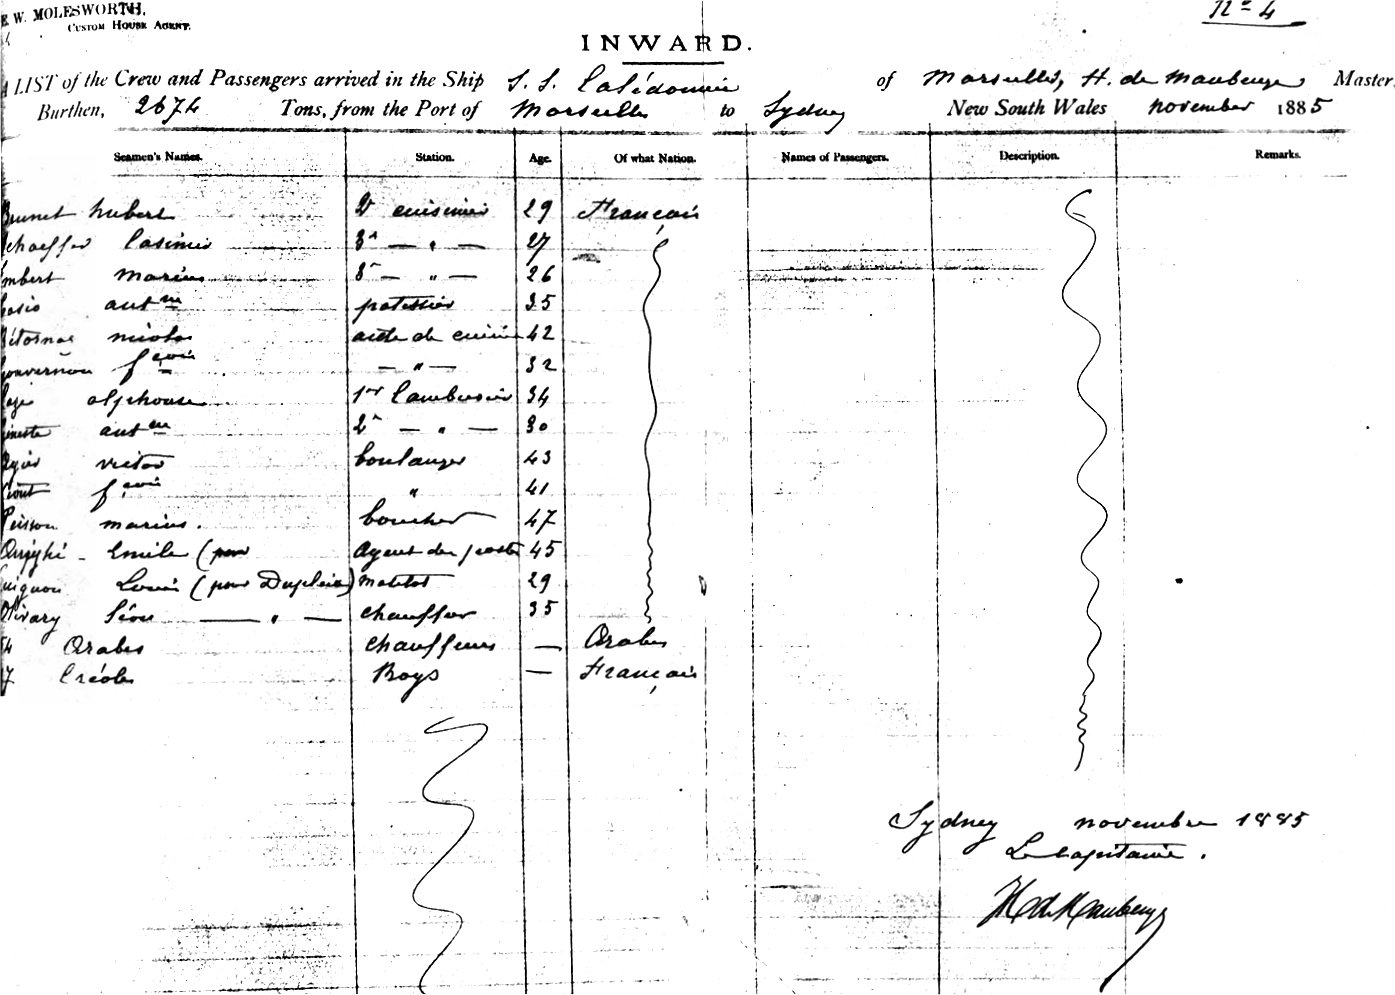 E W. MOLESWORTH,
CUSTOM HOUSE AGENT.
No 4
INWARD.
A LIST of the Crew and Passengers arrived in the Ship S. S. Calédonien of Marseilles, H. de Maubeuge Master,
Burthen, 2674 Tons, from the Port of Marseilles to Sydney New South Wales november 1885
Seamen's Names. Station. Age. Of what Nation. Names of Passengers. Description. Remarks.
Brunet hubert 2e cuisinier 29 Français
Schaeffer Casimir 3e — " — 27
Imbert Marius 3e — " — 26
antne patissier 35
nicolas aide de cuisine 42
Gouvernon fçois — " — 32
alphonse 1er Cambusier 34
antne 2e — " — 30
victor boulanger 43
fçois " 41
Peisson marius. boucher 47
Emile (pour agent des postes 45
Guignon Louis (pour Dupleix) matelot 29
Olivary Léon — " — chauffeur 35
54 Arabes chauffeurs — Arabes
7 Créoles Boys — Français
Sydney novembre 1885
Le Capitaine.
H de Maubeuge